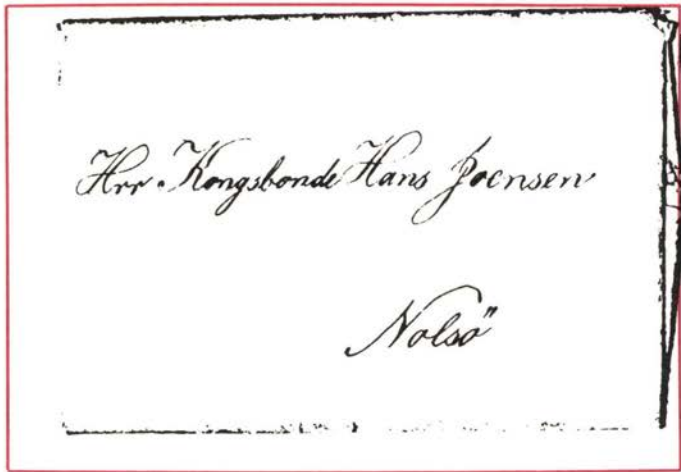 Hrr. Kongsbonde Hans Joensen
Nolsö